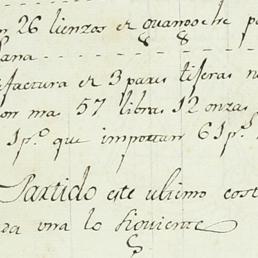 26 lienzos et quando ehe
ana
factura et 3 pares tiseras
on mas 57 libras 12 onzas
1 p.º que importan 61 p.s
Partido este ultimo cost
da vna lo siguiente